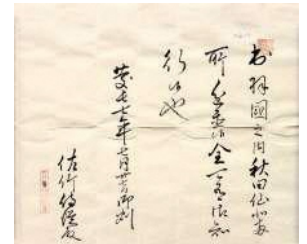 出羽國之内秋田仙北両
所進置候全可有御知
行候也
慶長七年七月廿七日御判
佐竹侍従殿